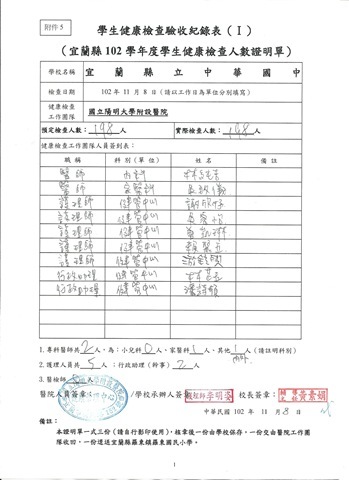 附件5
學生健康檢查驗收紀錄表(I)
(宜蘭縣102學年度學生健康檢查人數證明單)
學校名稱 宜蘭縣立中華國中
檢查日期 102年11月8日(請以工作日為單位分別填寫)
健康檢查工作團隊 國立陽明大學附設醫院
預定檢查人數:198人 實際檢查人數:198人
健康檢查工作團隊人員簽到表:
職稱 科別(單位) 姓名 備註
醫師 內科
醫師 家醫科
護理師 健管中心
護理師 健管中心
護理師 健管中心
護理師 健管中心
護理師 健管中心
行政助理 健管中心
行政助理 健管中心
1.專科醫師共2人、為:小兒科0人、家醫科1人、其他1人(請註明科別)
內科
2.護理人員共5人;行政助理(幹事)2人
3.醫檢師 人
醫院人員簽章 /學校承辦人簽章 李明葵 校長簽章:黃素娟
中華民國102年11月8日
備註:
本證明單一式三份(請自行影印使用),核章後一份由學校保存,一份交由醫院工作團
隊收回,一份送送宜蘭縣羅東鎮羅東國民小學。
1